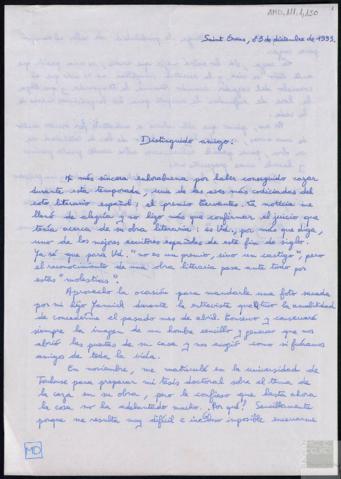 AMD, 111, 1, 150
Saint Orens, 23 de diciembre de 1993.
Distinguido amigo:
Mi más sincera enhorabuena por haber conseguido cazar
durante esta temporada, una de las aves más codiciadas del
coto literario español: el premio Cervantes. La noticia me
llenó de alegría y no hizo más que confirmar el juicio que
tenía acerca de su obra literaria: es Vd., por más que diga,
uno de los mejores escritores españoles de este fin de siglo.
Ya sé que para Vd. "no es un premio, sino un castigo", pero
el reconocimiento de una obra literaria pasa ante todo por
estas "molestias".
Aprovecho la ocasión para mandarle una foto sacada
por mi hijo Yannick durante la entrevista que tuvo la amabilidad
de concederme el pasado mes de abril. Conservo y conservaré
siempre la imagen de un hombre sencillo y sincero que nos
abrió las puertas de su casa y nos acogió como si fuéramos
amigos de toda la vida.
En noviembre, me matriculé en la universidad de
Toulouse para preparar mi tesis doctoral sobre el tema de
la caza en su obra, pero le confieso que hasta ahora
la cosa no ha adelantado mucho. ¿Por qué? Sencillamente
porque me resulta muy difícil e incluso imposible encerrarme
MD